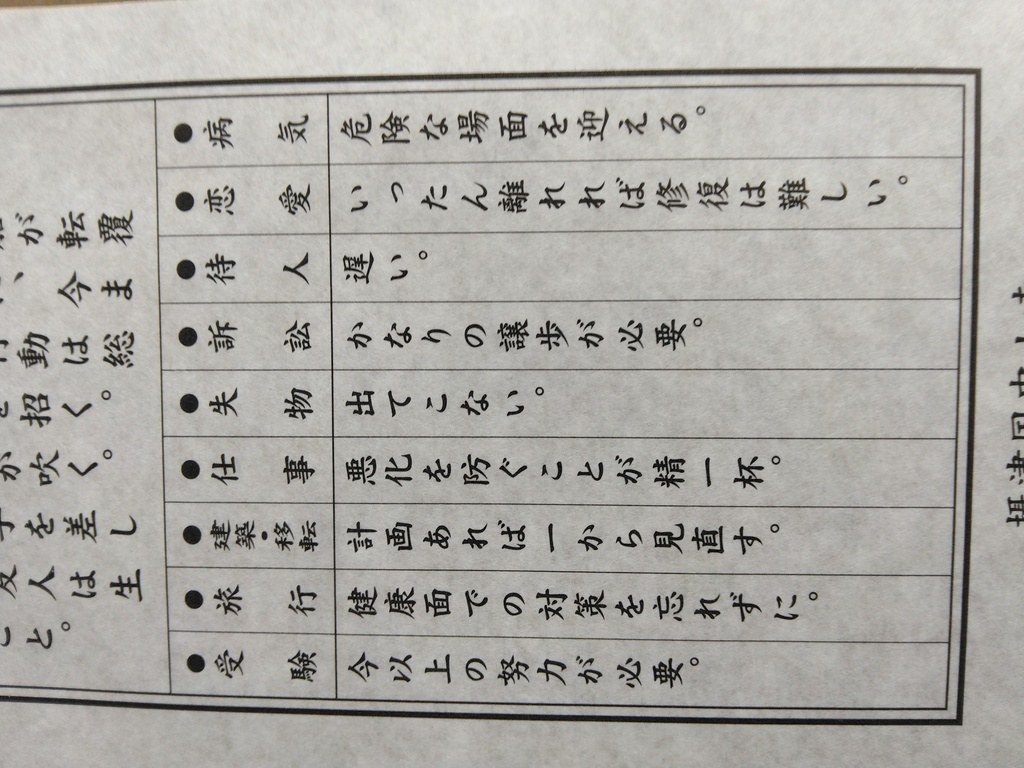 が転覆
、今ま
動は総
招く。
吹く。
を差し
人は生
と。
●病気 危険な場面を迎える。
●恋愛 いったん離れれば修復は難しい。
●待人 遅い。
●訴訟 かなりの譲歩が必要。
●失物 出てこない。
●仕事 悪化を防ぐことが精一杯。
●建築・移転 計画あれば一から見直す。
●旅行 健康面での対策を忘れずに。
●受験 今以上の努力が必要。